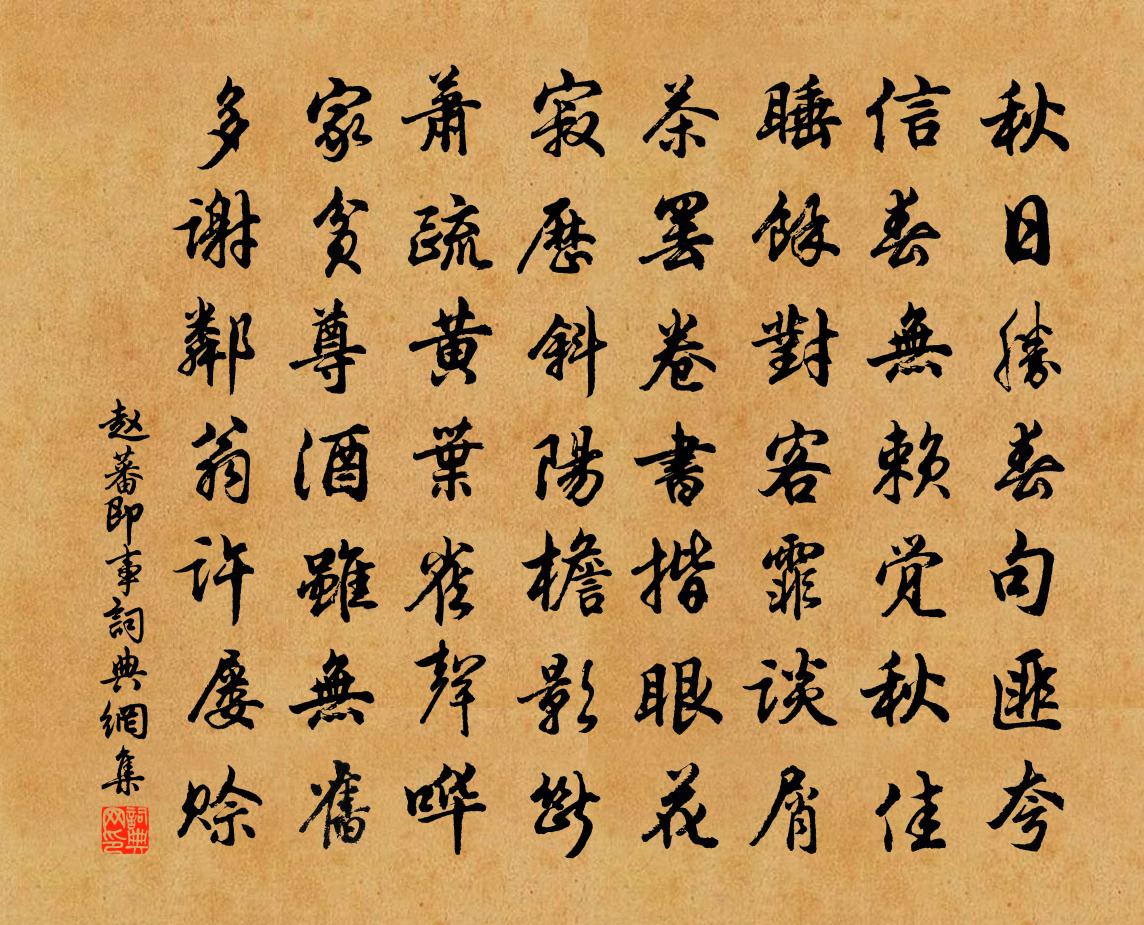 秋日勝春句匪夸
信春無賴觉秋佳
睡餘對客霏談屑
茶罷卷書揩眼花
寂歷斜陽檐影斷
蕭疏黄葉雀聲嘩
家貧尊酒雖無舊
多謝鄰翁許屢賒
赵蕃即事詞典網集
詞典网印